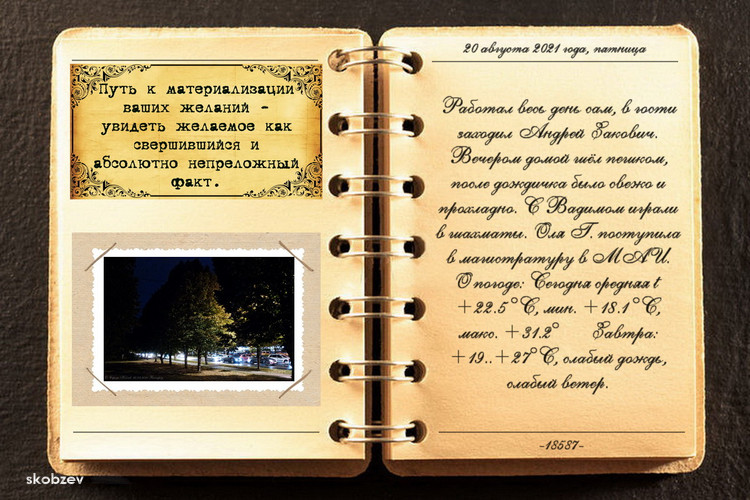 Путь к материализации
ваших желаний –
увидеть желаемое как
свершившийся и
абсолютно непреложный
факт.
20 августа 2021 года, пятница
Работал весь день сам, в гости
заходил Андрей Закович.
Вечером домой шёл пешком,
после дождичка было свежо и
прохладно. С Вадимом играли
в шахматы. Оля Г. поступила
в магистратуру в МАИ.
О погоде: Сегодня средняя t
+22.5°C, мин. +18.1°C,
макс. +31.2° Завтра:
+19..+27°C, слабый дождь,
слабый ветер.
-18587-
skobzev